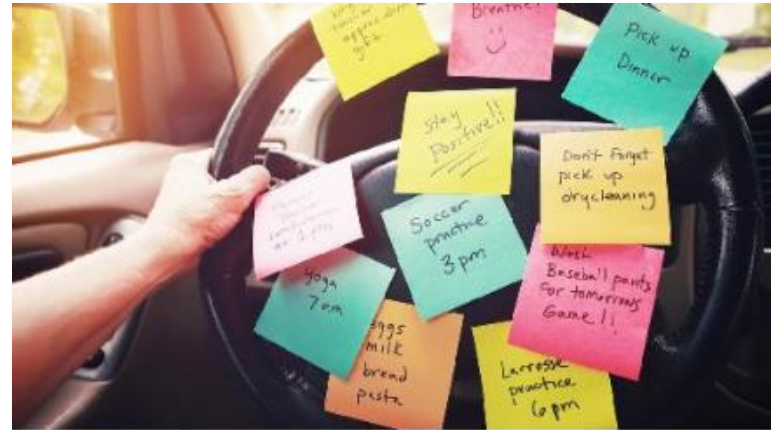 appreciation
gift
Breathe!
Pick up
Dinner
Stay
Positive!!
Don't forget
pick up
drycleaning
at 2 pm
Soccer
practice
3 pm
Wash
Baseball pants
For tomorrows
Game!!
yoga
7am
eggs
milk
bread
pasta
Lacrosse
practice
6pm